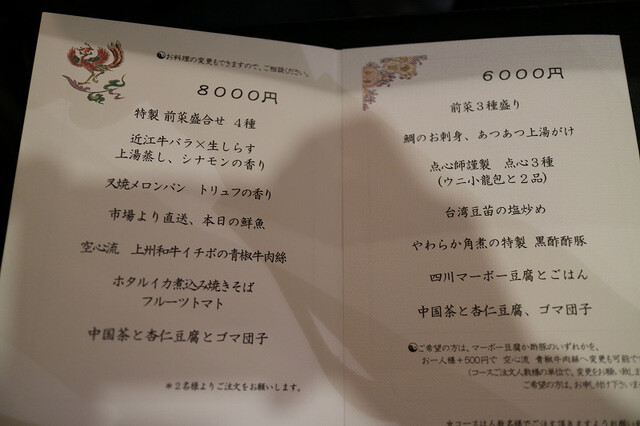 ☯お料理の変更もできますので、ご相談ください。
8000円
特製 前菜盛合せ 4種
近江牛バラ×生しらす
上湯蒸し、シナモンの香り
叉焼メロンパン トリュフの香り
市場より直送、本日の鮮魚
空心流 上州和牛イチボの青椒牛肉絲
ホタルイカ煮込み焼きそば
フルーツトマト
中国茶と杏仁豆腐とゴマ団子
*2名様よりご注文をお願いします。
6000円
前菜3種盛り
鯛のお刺身、あつあつ上湯がけ
点心師謹製 点心3種
(ウニ小龍包と2品)
台湾豆苗の塩炒め
やわらか角煮の特製 黒酢酢豚
四川マーボー豆腐とごはん
中国茶と杏仁豆腐、ゴマ団子
☯ご希望の方は、マーボー豆腐か酢豚のいずれかを、
お一人様+500円で 空心流 青椒牛肉絲へ変更も可能で
(コースご注文人数様の単位で、変更をお願い致しま
ご希望の方は、お申し付け下さいま
*コースは人数名様でご注文頂きますようお願い